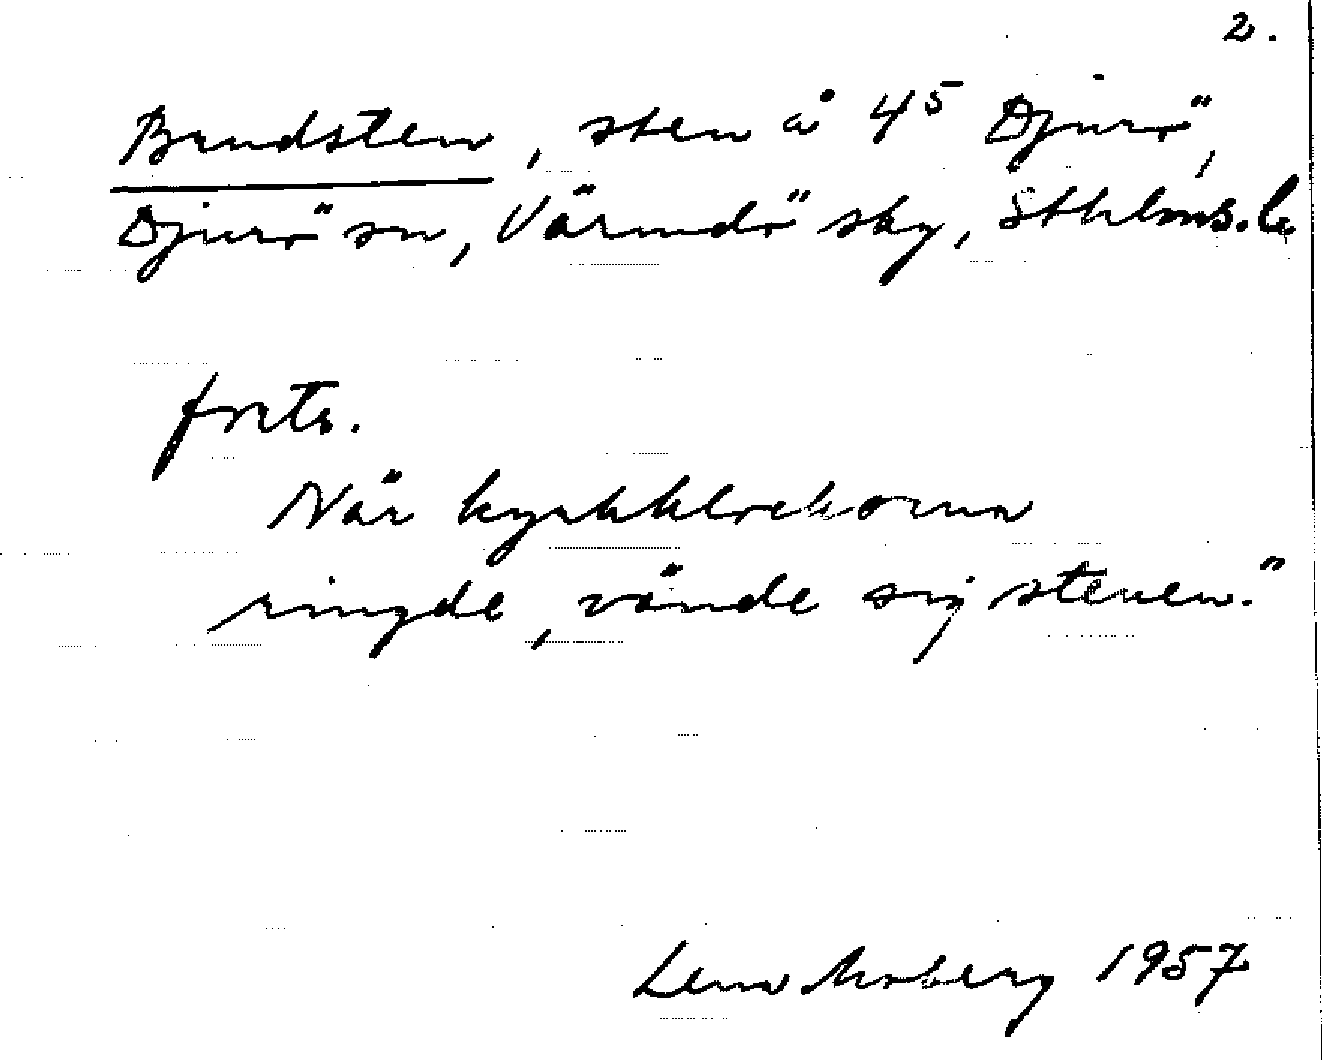 2.
Brudsten, sten å 4⁵ Djurö,
Djurö sn, Värmdö sky, Sthlms.l.
forts.
När kyrkklockorna
ringde, vände sig stenen."
Lena Moberg 1957